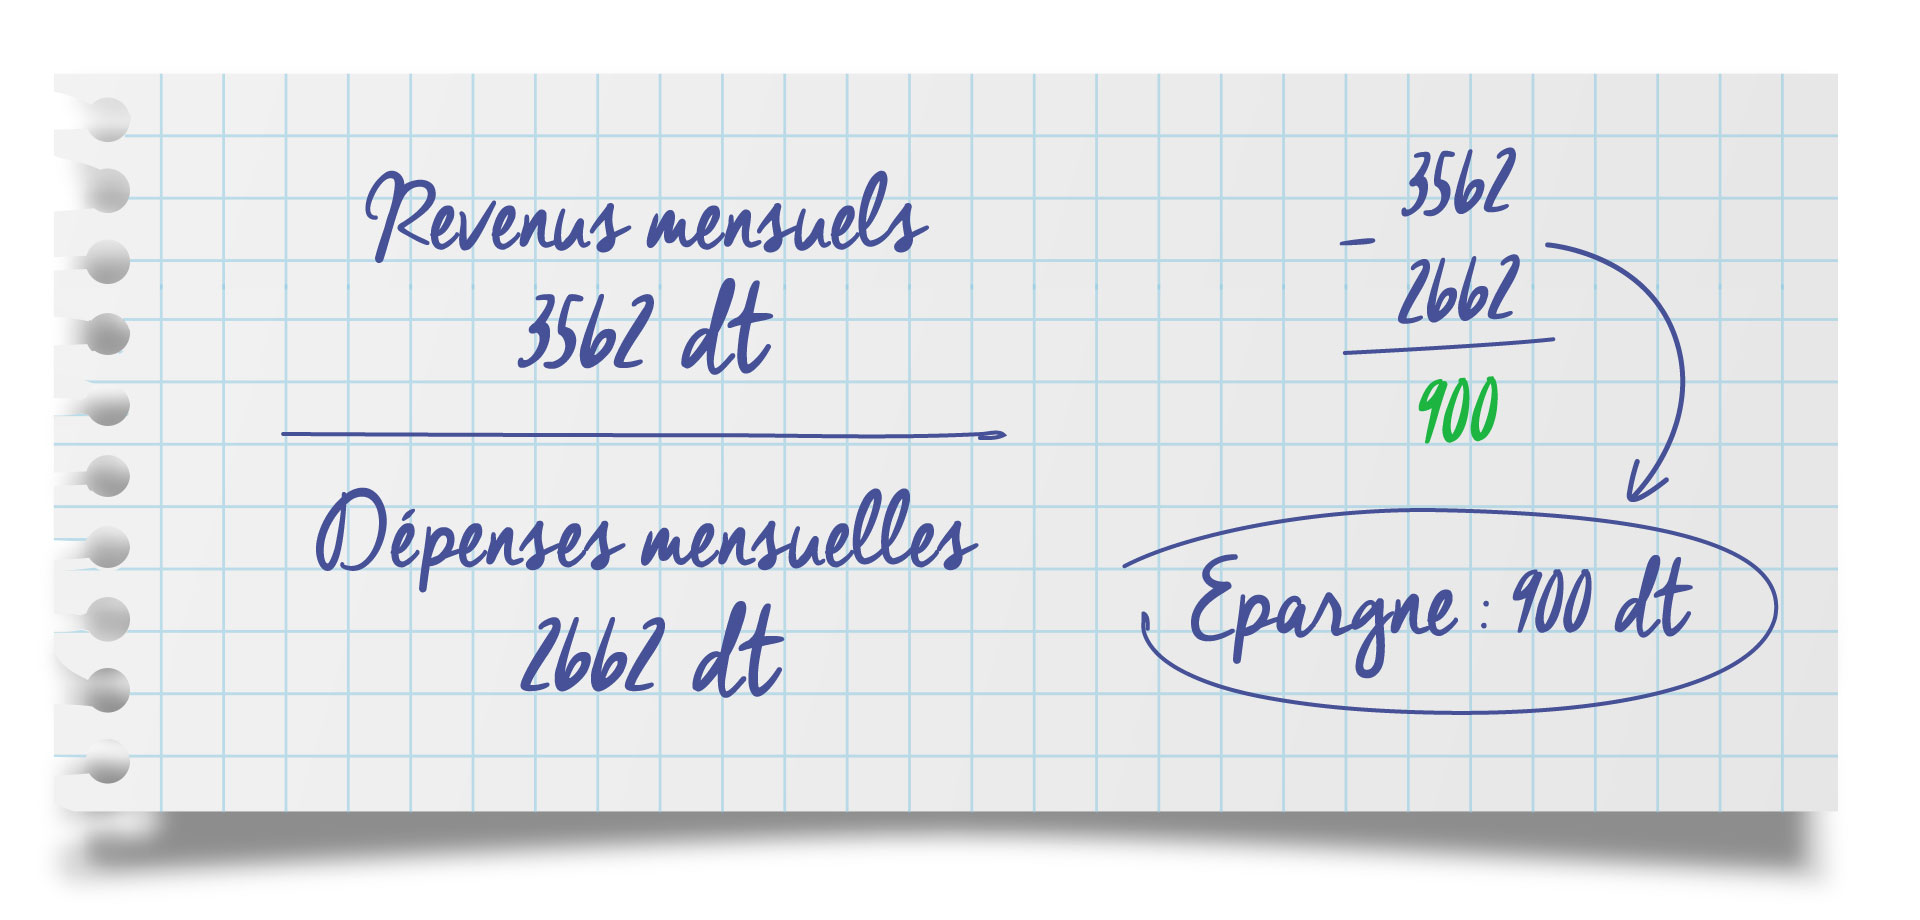 Revenus mensuels
3562 dt
Dépenses mensuelles
2662 dt
3562
–
2662
900
Epargne : 900 dt